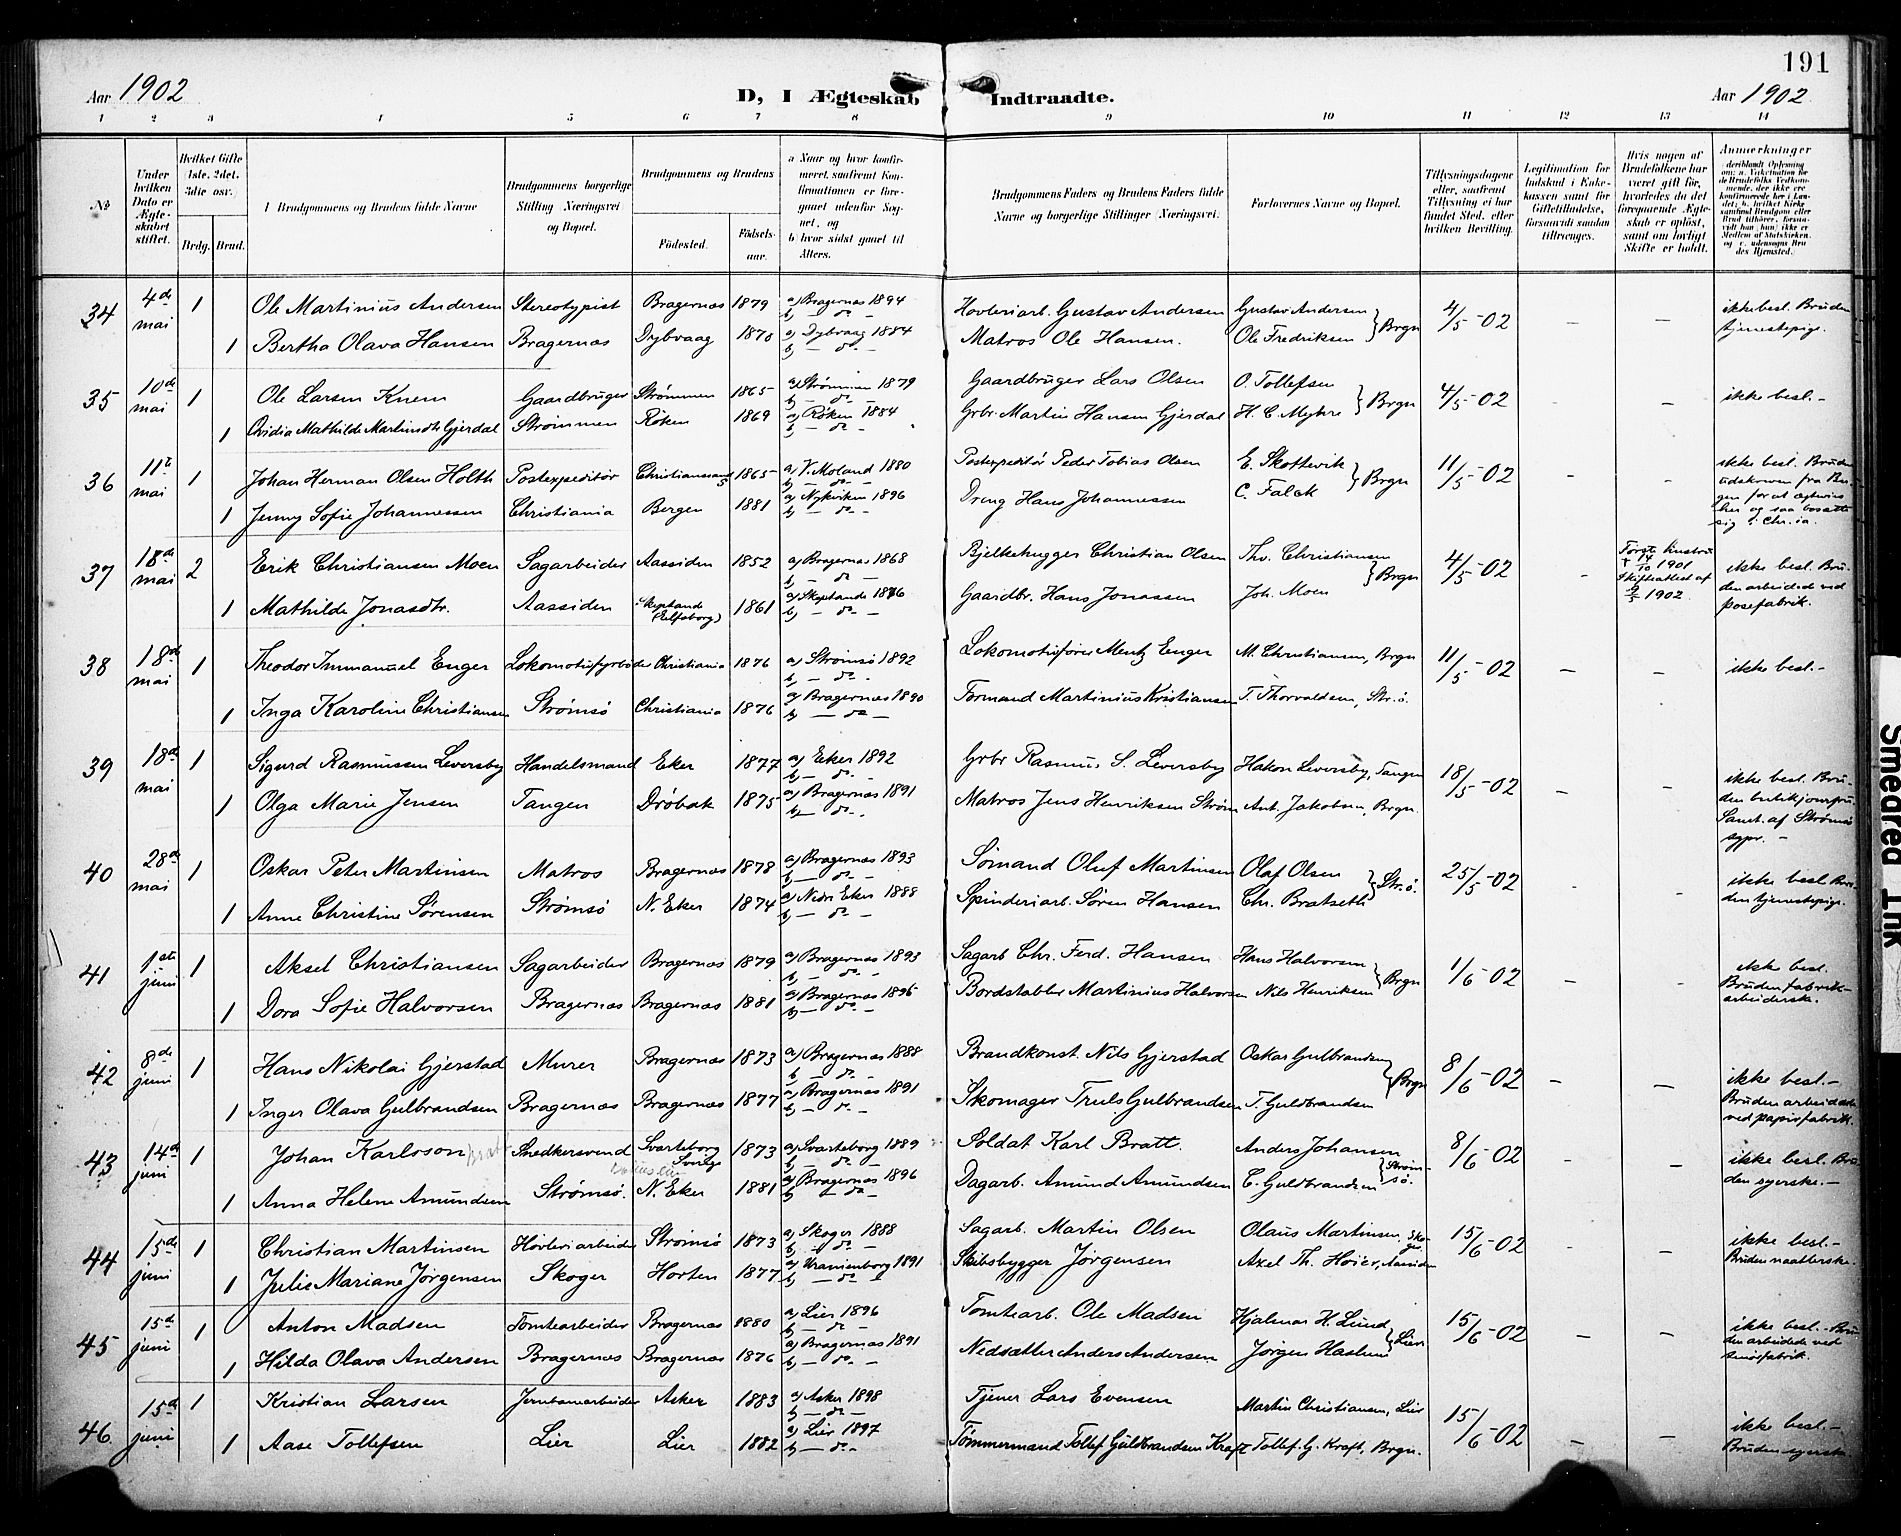 191
Aar 1902
D, I Ægteskab Indtraadte.
Aar 1902
1 2 3 4 5 6 7 8 9 10 11 12 13 14
No
Under hvilken Dato er Ægteskabet stiftet.
Hvilket Gifte (1ste, 2det, 3die osv.)
Brdg. Brud.
Brudgommens og Brudens fulde Navne
Brudgommens borgerlige Stilling (Næringsvei) og Bopæl.
Brudgommens og Brudens
Födested.
Födselsaar.
a Naar og hvor konfirmeret, saafremt Konfirmationen er foregaaet udenfor Sognet, og
b hvor sidst gaaet til Alters.
Brudgommens Faders og Brudens Faders fulde Navne og borgerlige Stillinger (Næringsvei).
Forlovernes Navne og Bopæl.
Tillysningsdagene eller, saafremt Tillysning ei har fundet Sted, efter hvilken Bevilling.
Legitimation for Indskud i Enkekassen samt for Giftetilladelse, forsaavidt saadan tiltrænges.
Hvis nogen af Brudefolkene har været gift før, hvorledes da det foregaaende Ægteskab er opløst, samt om lovligt Skifte er holdt.
Anmærkninger
34 4de mai 1 Ole Martinius Andersen Stereotypist Bragernæs 1879 a) Bragernæs 1894 b) — do — Hovleriarb. Gustav Andersen Gustav Andersen } Brgn 4/5-02 — — ikke besl. Bruden tjenestepige.
1 Bertha Olava Hansen Bragernæs Dybvaag 1870 a) Dybvaag 1884 b) — do — Matros Ole Hansen. Ole Fredriksen
35 10de mai 1 Ole Larsen Knem Gaardbruger Strømmen 1865 a) Strømmen 1879 b) — do — Gaardbruger Lars Olsen O. Tollefsen } Brgn 4/5-02 — — ikke besl. —
1 Ovidia Mathilde Martinsdtr Gjerdal Strømmen Røken 1869 a) Røken 1884 b) — do — Grbr. Martin Hansen Gjerdal H. C. Myhre
36 11te mai 1 Johan Herman Olsen Holth Postexpeditør Christianssand 1865 a) V. Moland 1880 b) — do — Postexpeditør Peder Tobias Olsen E. Skottevik } Brgn 11/5-02 — — ikke besl. Bruden udskreven fra Bergen for at ægtevies her og saa bosætte sig i Chr.ia.
1 Jenny Sofie Johannessen Christiania Bergen 1881 a) Nykirken 1896 b) — do — Dreng Hans Johannessen C. Falck
37 18de mai 2 Erik Christiansen Moen Sagarbeider Aassiden 1852 a) Bragernæs 1868 b) — do — Bjelkehugger Christian Olsen Thv. Christiansen } Brgn 4/5-02 — Første hustru † 14/10 1901 Skifteattest af 2/5 1902 ikke besl. Bruden arbeidede ved posefabrik.
1 Mathilde Jonasdtr. Aassiden Skephande (Elfsborg) 1861 a) Skephande 1876 b) — do — Gaardbr. Hans Jonassen Joh. Moen
38 18de mai 1 Theodor Immanuel Enger Lokomotivfyrbøder Christiania 1876 a) Strømsø 1892 b) — do — Lokomotivfører Mentz Enger M. Christiansen, Brgn 11/5-02 — — ikke besl. —
1 Inga Karoline Christiansen Strømsø Christiania 1876 a) Bragernæs 1890 b) — do — Formand Martinius Kristiansen T. Thorvaldsen, Str.ö.
39 18de mai 1 Sigurd Rasmussen Leversby Handelsmand Eker 1877 a) Eker 1892 b) — do — Grbr Rasmus S. Leversby Hakon Leversby, Tangen 18/5-02 — — ikke besl. Bruden butikjomfru. Samt. af Strømsø sgpr. —
1 Olga Marie Jensen Tangen Drøbak 1875 a) Bragernæs 1891 b) — do — Matros Jens Henriksen Strøm Ant. Jakobsen, Brgn.
40 28de mai 1 Oskar Peter Martinsen Matros Bragernæs 1878 a) Bragernæs 1893 b) — do — Sømand Oluf Martinsen Olaf Olsen } Str.ö. 25/5-02 — — ikke besl. Bruden tjenestepige.
1 Anne Christine Sørensen Strømsø N. Eker 1874 a) Nedre Eker 1888 b) — do — Spinderiarb. Søren Hansen Chr. Bratseth
41 1ste juni 1 Aksel Christiansen Sagarbeider Bragernæs 1879 a) Bragernæs 1893 b) — do — Sagarb Chr. Ferd. Hansen Hans Halvorsen } Brgn 1/6-02 — — ikke besl. Bruden fabrikarbeiderske.
1 Dora Sofie Halvorsen Bragernæs Bragernæs 1881 a) Bragernæs 1896 b) — do — Bordstabler Martinius Halvorsen Nils Henriksen
42 8de juni 1 Hans Nikolai Gjerstad Murer Bragernæs 1873 a) Bragernæs 1888 b) — do — Brandkonst. Nils Gjerstad Oskar Gulbrandsen } Brgn 8/6-02 — — ikke besl. — Bruden arbeidede ved papirfabrik.
1 Inger Olava Gulbrandsen Bragernæs Bragernæs 1877 a) Bragernæs 1891 b) — do — Skomager Truls Gulbrandsen T. Guldbrandsen
43 14de juni 1 Johan Karlsson Bratt Snedkersvend Svarteborg Sverige 1873 a) Svarteborg 1889 b) — do — Soldat Karl Bratt. Anders Johansen } Strømsö. 8/6-02 — — ikke besl. Bruden syerske. —
1 Anna Helene Amundsen Strømsö. N. Eker 1881 a) Bragernæs 1896 b) — do — Dagarb. Amund Amundsen C. Guldbrandsen
44 15de juni 1 Christian Martinsen Høvleriarbeider Strømsö 1873 a) Skoger 1888 b) — do — Sagarb. Martin Olsen Olaus Martinsen, Skoger 15/6-02 — — ikke besl. — Bruden naatlerske.
1 Julie Mariane Jørgensen Skoger Horten 1877 a) Uranienborg 1891 b) — do — Skibsbygger Jørgensen Axel Th. Høier, Aassiden
45 15de juni 1 Anton Madsen Tomtearbeider Bragernæs 1880 a) Lier 1896 b) — do — Tomtearb. Ole Madsen Hjalmar H. Lund } Lier 15/6-02 — — ikke besl. — Bruden arbeidede ved smørfabrik.
1 Hilda Olava Andersen Bragernæs Bragernæs 1876 a) Bragernæs 1891 b) — do — Nedsætter Anders Andersen Jørgen Haslum
46. 15de juni 1 Kristian Larsen Jernbanearbeider Asker 1883 a) Asker 1898 b) — do — Tjener Lars Evensen Martin Christiansen, Lier 15/6-02 — — ikke besl. — Bruden syerske
1 Aase Tollefsen Lier Lier 1882 a) Lier 1897 b) — do — Tømmermand Tollef Guldbrandsen Kraft Tollef. G. Kraft, Brgn.
Smeared Ink